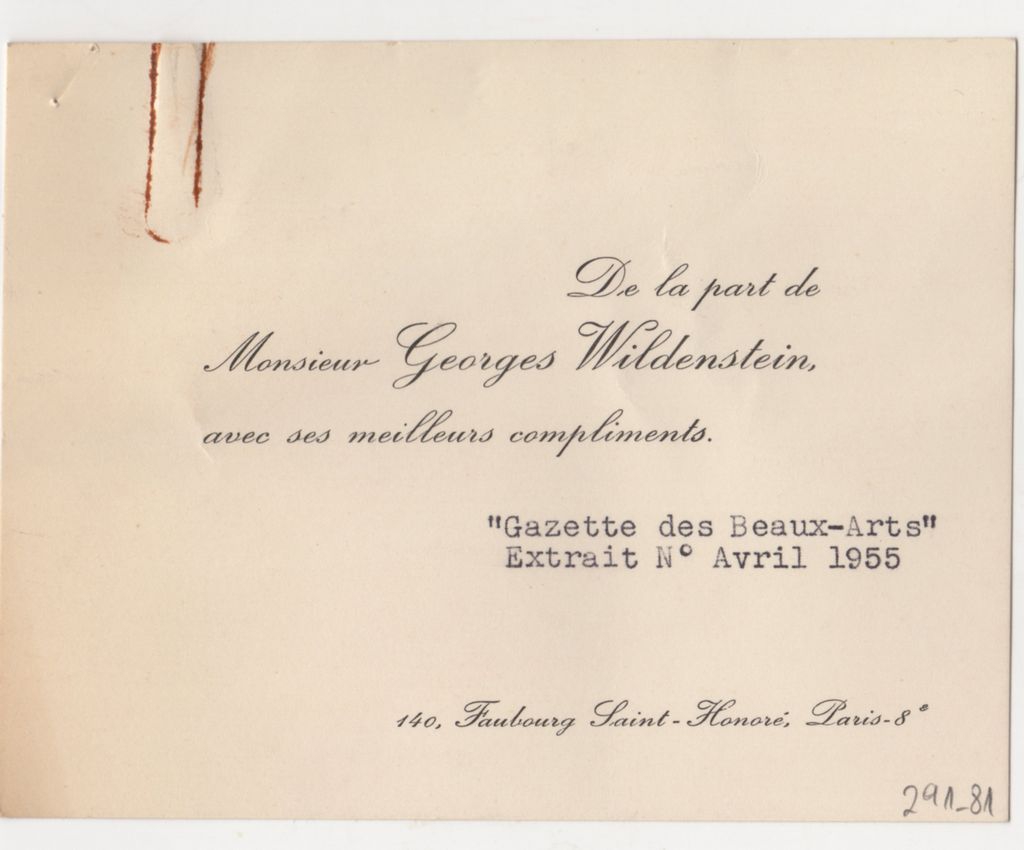 De la part de
Monsieur Georges Wildenstein,
avec ses meilleurs compliments.
"Gazette des Beaux-Arts"
Extrait N° Avril 1955
140, Faubourg Saint-Honoré, Paris-8e
291-81